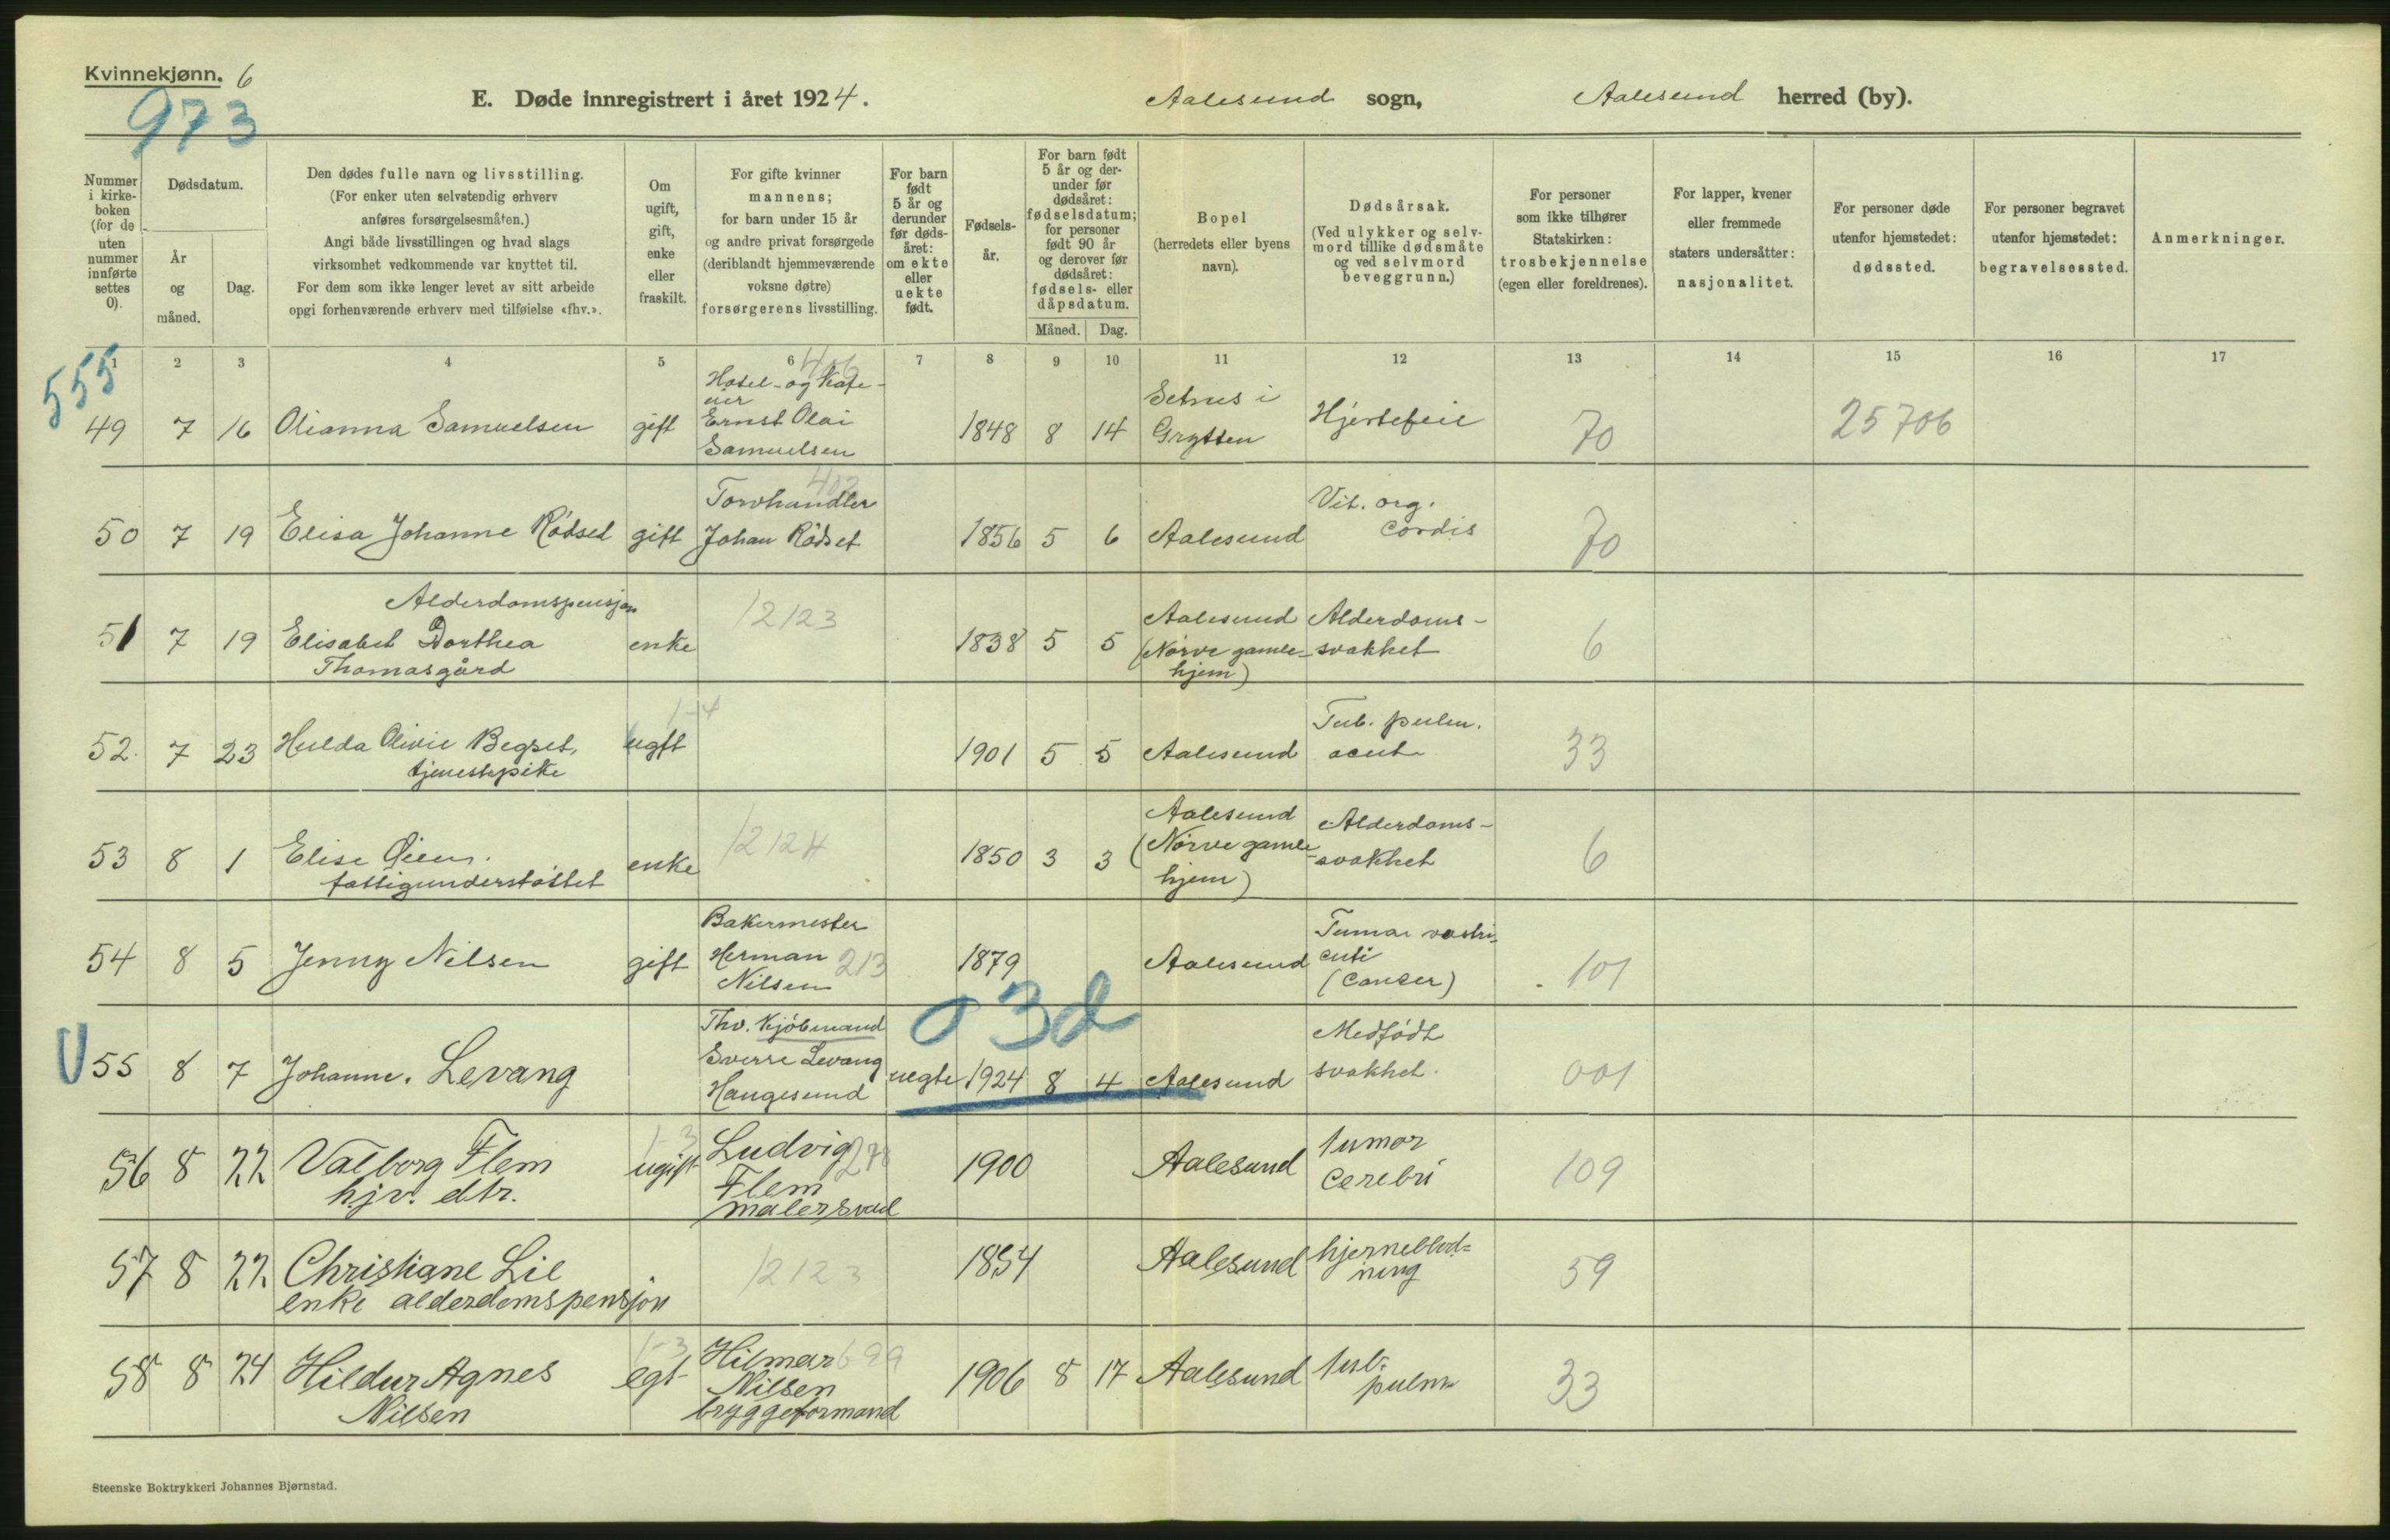 Kvinnekjønn. 6
973
E. Døde innregistrert i året 1924. Aalesund sogn, Aalesund herred (by).
Nummer i kirke- boken (for de uten nummer innførte settes 0).
Dødsdatum.
År og måned.
Dag.
Den dødes fulle navn og livsstilling.
(For enker uten selvstendig erhverv
anføres forsørgelsesmåten.)
Angi både livsstillingen og hvad slags
virksomhet vedkommende var knyttet til.
For dem som ikke lenger levet av sitt arbeide
opgi forhenværende erhverv med tilføielse «fhv.».
Om ugift, gift, enke eller fraskilt.
For gifte kvinner
mannens;
for barn under 15 år
og andre privat forsørgede
(deriblandt hjemmeværende
voksne døtre)
forsørgerens livsstilling.
For barn født 5 år og derunder før døds- året: om ekte eller uekte født.
Fødsels- år.
For barn født 5 år og der- under før dødsåret: fødselsdatum; for personer født 90 år og derover før dødsåret: fødsels- eller dåpsdatum.
Måned. Dag.
Bopel
(herredets eller byens
navn).
Dødsårsak.
(Ved ulykker og selv-
mord tillike dødsmåte
og ved selvmord
beveggrunn.)
For personer
som ikke tilhører
Statskirken:
trosbekjennelse
(egen eller foreldrenes).
For lapper, kvener
eller fremmede
staters undersåtter:
nasjonalitet.
For personer døde
utenfor hjemstedet:
dødssted.
For personer begravet
utenfor hjemstedet:
begravelsessted.
Anmerkninger.
1 2 3 4 5 6 7 8 9 10 11 12 13 14 15 16 17
555
406
49 7 16 Olianna Samuelsen gift Hotel- og Kafe- eier Ernst Olai Samuelsen 1848 8 14 Setnes i Grytten Hjertefeil 70 25706
402
50 7 19 Elisa Johanne Rödset gift Torvhandler Johan Rödset 1856 5 6 Aalesund Vit. org. cordis 70
51 7 19 Alderdomspensjon Elisabet Dorthea Thomasgård enke 12123 1838 5 5 Aalesund (Nörve gamle- hjem) Alderdoms- svakhet 6
1-4
52. 7 23 Hulda Olivie Begset, tjenestepike ugft 1901 5 5 Aalesund Tub. pulm. acut 33
53 8 1 Elise Øien. fattigunderstöttet enke 12124 1850 3 3 Aalesund (Nörve gamle- hjem) Alderdoms- svakhet 6
54 8 5 Jenny Nilsen gift Bakermester Herman Nilsen 213 1879 Aalesund Tumor (Canser) 101
0 3d
U 55 8 7 Johanne. Levang Thv. Kjöbmand Sverre Levang Haugesund uegte 1924 8 4 Aalesund Medfödt svakhet. 001
56 8 22 Valborg Flem hjv. dtr. 1-3 ugift Ludvig Flem malersvend 278 1900 Aalesund tumor cerebri 109
57 8 22 Christiane Lie enke alderdomspensjon 12123 1854 Aalesund hjerneblød= ning 59
58 8 24 Hildur Agnes Nilsen 1-3 egt- Hilmar Nilsen bryggeformand 699 1906 8 17 Aalesund tub. pulm 33
Steenske Boktrykkeri Johannes Bjørnstad.